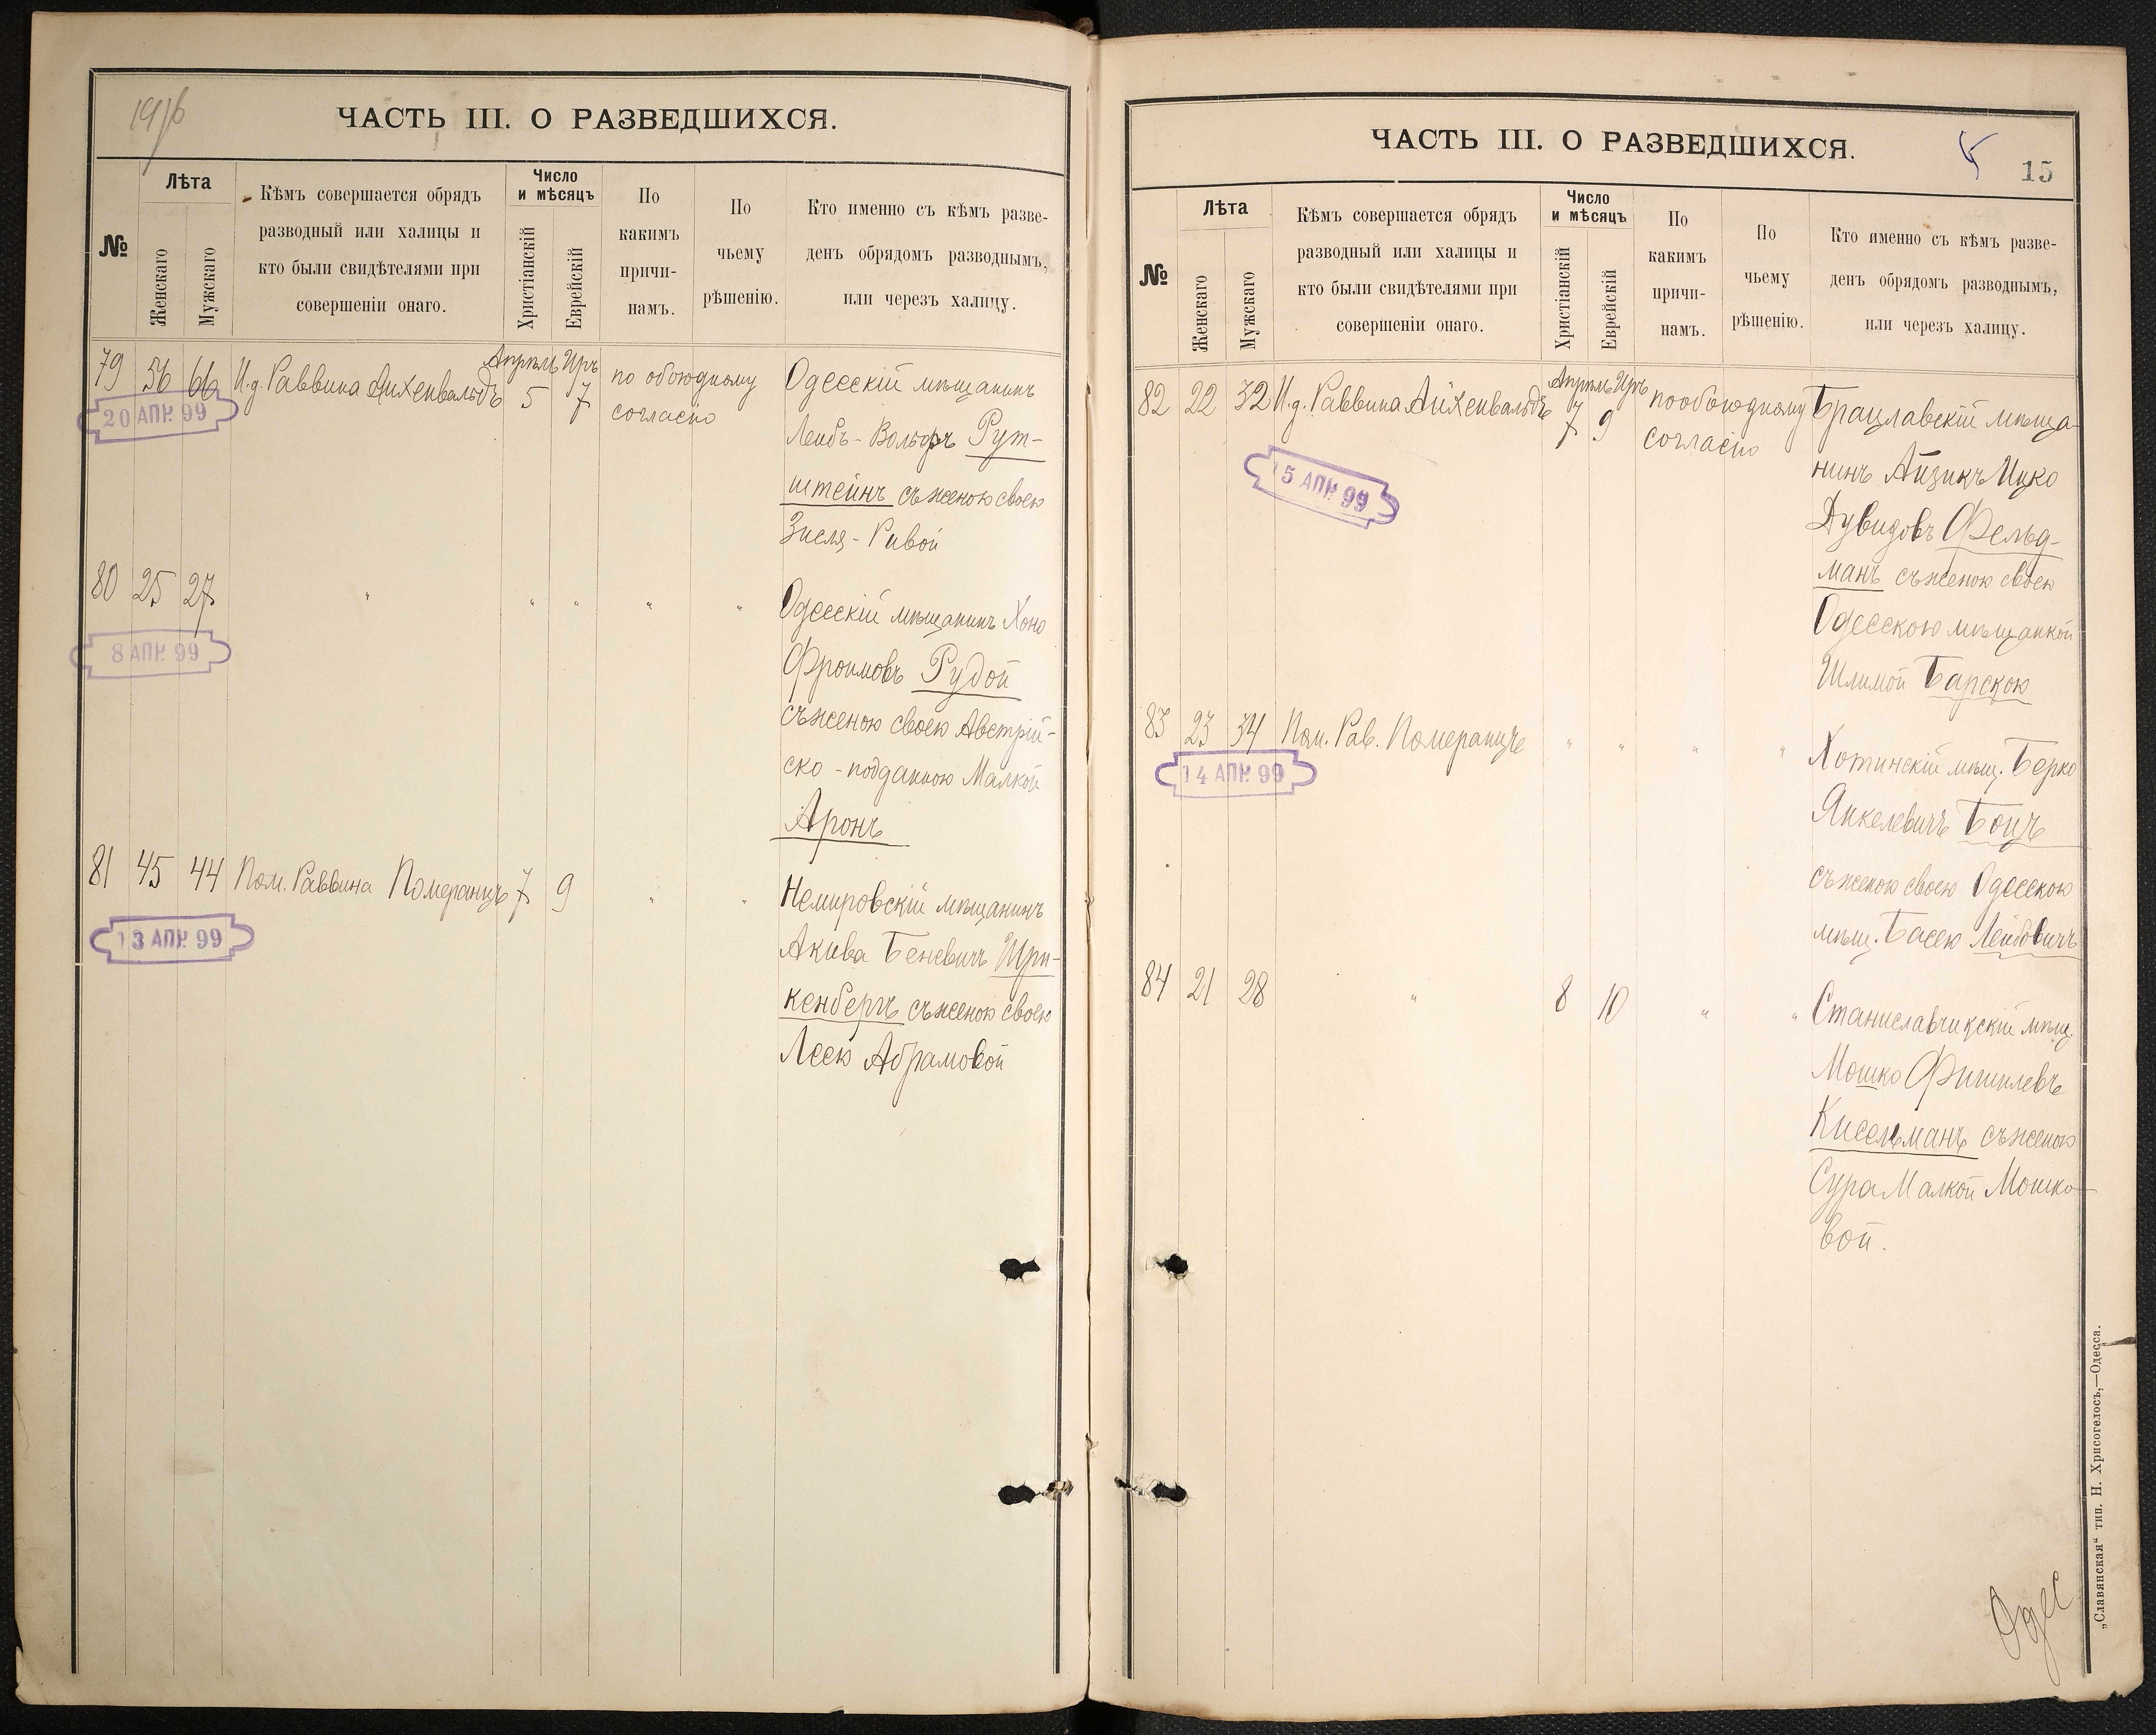 1916
ЧАСТЬ III. О РАЗВЕДШИХСЯ.
№
Лѣта
Женскаго
Мужскаго
Кѣмъ совершается обрядъ
разводный или халицы и
кто были свидѣтелями при
совершеніи онаго.
Число
и мѣсяцъ
Христіанскій
Еврейскій
По
какимъ
причи-
намъ.
По
чьему
рѣшенію.
Кто именно съ кѣмъ разве-
денъ обрядомъ разводнымъ,
или черезъ халицу.
79 56 66 И.д. Раввина Айхенвальдъ Апрѣль 5 Иръ 7 по обоюдному
согласію
20 АПР. 99
Одесскій мѣщанинъ
Лейбъ-Вольфъ Рут-
штейнъ съ женою своею
Зисля-Ривой
80 25 27 " " " " "
8 АПР. 99
Одесскій мѣщанинъ Хоно
Фроимовъ Рудой
съ женою своею Австрій-
ско-подданною Малкой
Аронъ
81 45 44 Пом. Раввина Померанцъ 7 9 " "
13 АПР. 99
Немировскій мѣщанинъ
Акива Беневичъ Ири-
кенбергъ съ женою своею
Леею Абрамовой
ЧАСТЬ III. О РАЗВЕДШИХСЯ.
15
№
Лѣта
Женскаго
Мужскаго
Кѣмъ совершается обрядъ
разводный или халицы и
кто были свидѣтелями при
совершеніи онаго.
Число
и мѣсяцъ
Христіанскій
Еврейскій
По
какимъ
причи-
намъ.
По
чьему
рѣшенію.
Кто именно съ кѣмъ разве-
денъ обрядомъ разводнымъ,
или черезъ халицу.
82 22 32 И.д. Раввина Айхенвальдъ Апрѣль 7 Иръ 9 по обоюдному
согласію
15 АПР. 99
Брацлавскій мѣща-
нинъ Айзикъ Ицко
Дувидовъ Фельд-
манъ съ женою своею
Одесскою мѣщанкой
Шлимой Барскою
83 23 34 Пом. Рав. Померанцъ " " " "
14 АПР. 99
Хотинскій мѣщ. Берко
Янкелевичъ Боцъ
съ женою своею Одесскою
мѣщ. Басею Лейбовичъ
84 21 28 " 8 10 " "
Станиславчикскій мѣщ.
Мошко Фишилевъ
Кисельманъ съ женою
Сура Малкой Мошко-
вой.
Одес
„Славянская“ тип. Н. Хрисогелосъ,—Одесса.